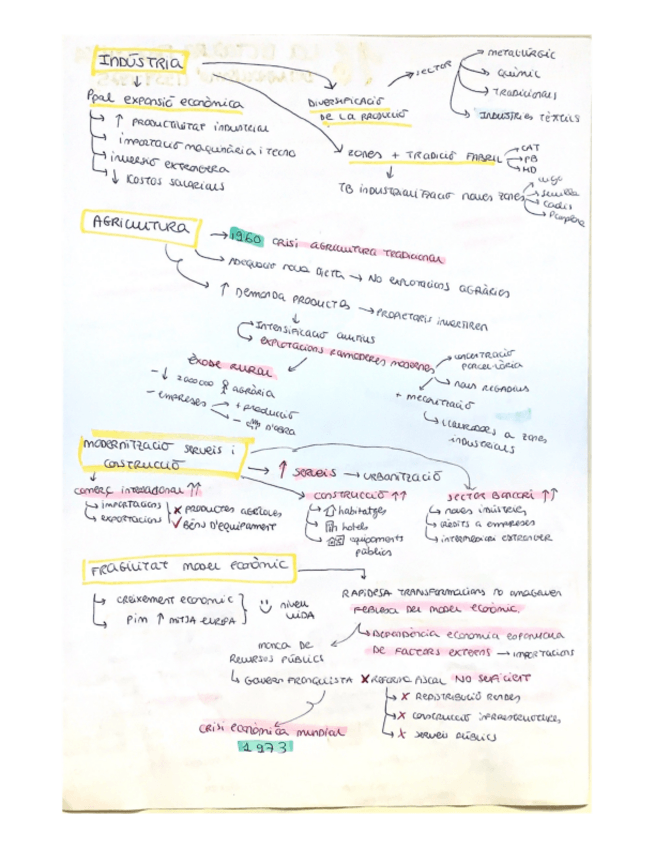 INDÚSTRIA
↓
Ppal expansió econòmica
→ ↑ PRODUCTIVITAT INDUSTRIAL
→ importació maquinària i tecno
→ inversió extrangera
→ ↓ KOSTOS SALARIALS
DIVERSIFICACIÓ
DE LA PRODUCCIÓ
→ SECTOR
→ METAL·LÚRGIC
→ QUÍMIC
→ TRADICIONALS
→ INDUSTRIES TÈXTILS
ZONES + TRADICIÓ FABRIL
→ CAT
→ PB
→ MD
TB INDUSTRIALITZACIÓ NOVES ZONES
→ Sevilla
→ Cadis
→ Pamplona
AGRICULTURA
→ 1960 CRISI AGRICULTURA TRADICIONAL
→ ADEQUACIÓ NOVA DIETA → NO EXPLOTACIONS AGRÀRIES
→ ↑ DEMANDA PRODUCTES → PROPIETARIS INVERTIREN
INTENSIFICACIÓ CULTIUS
EXPLOTACIONS RAMADERES MODERNES
→ CONCENTRACIÓ
PARCEL·LÀRIA
→ NOUS REGADIUS
+ MECANITZACIÓ
ÈXODE RURAL
- ↓ 2000000 AGRÀRIA
- EMPRESES → + PRODUCCIÓ
→ - D'OBRA
→ A ZONES
INDUSTRIALS
MODERNITZACIÓ SERVEIS I
CONSTRUCCIÓ
→ ↑ SERVEIS → URBANITZACIÓ
COMERÇ INTERNACIONAL ↑↑
→ IMPORTACIONS
→ EXPORTACIONS
X PRODUCTES AGRÍCOLES
✓ BÉNS D'EQUIPAMENT
CONSTRUCCIÓ ↑↑
→ habitatges
→ hotels
→ equipaments
públics
SECTOR BANCARI ↑↑
→ NOVES INDÚSTRIES
→ CRÈDITS A EMPRESES
FRAGILITAT MODEL ECONÒMIC
→ CREIXEMENT ECONÒMIC
→ PIM ↑ MITJA EUROPA
NIVELL
VIDA
RAPIDESA TRANSFORMACIONS NO AMAGAVEN
FEBLESA DEL MODEL ECONÒMIC.
→ DEPENDÈNCIA ECONOMIA ESPANYOLA
DE FACTORS EXTERNS → IMPORTACIONS
MANCA DE
RECURSOS PÚBLICS
→ GOVERN FRANQUISTA X REFORMA FISCAL NO SUFICIENT
→ X REDISTRIBUCIÓ RENDES
→ X CONSTRUCCIÓ INFRAESTRUCTURES
→ X SERVEIS PÚBLICS
CRISI ECONÒMICA MUNDIAL
1973